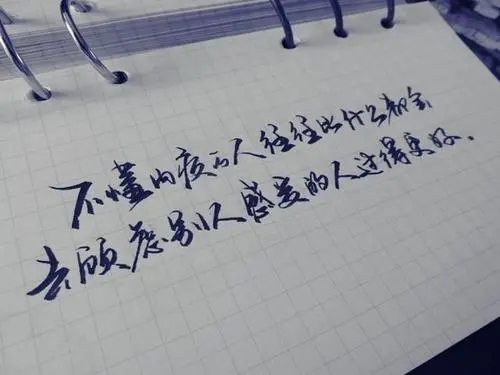 不懂内疚的人往往比什么都会
去顾虑别人感受的人过得更好.